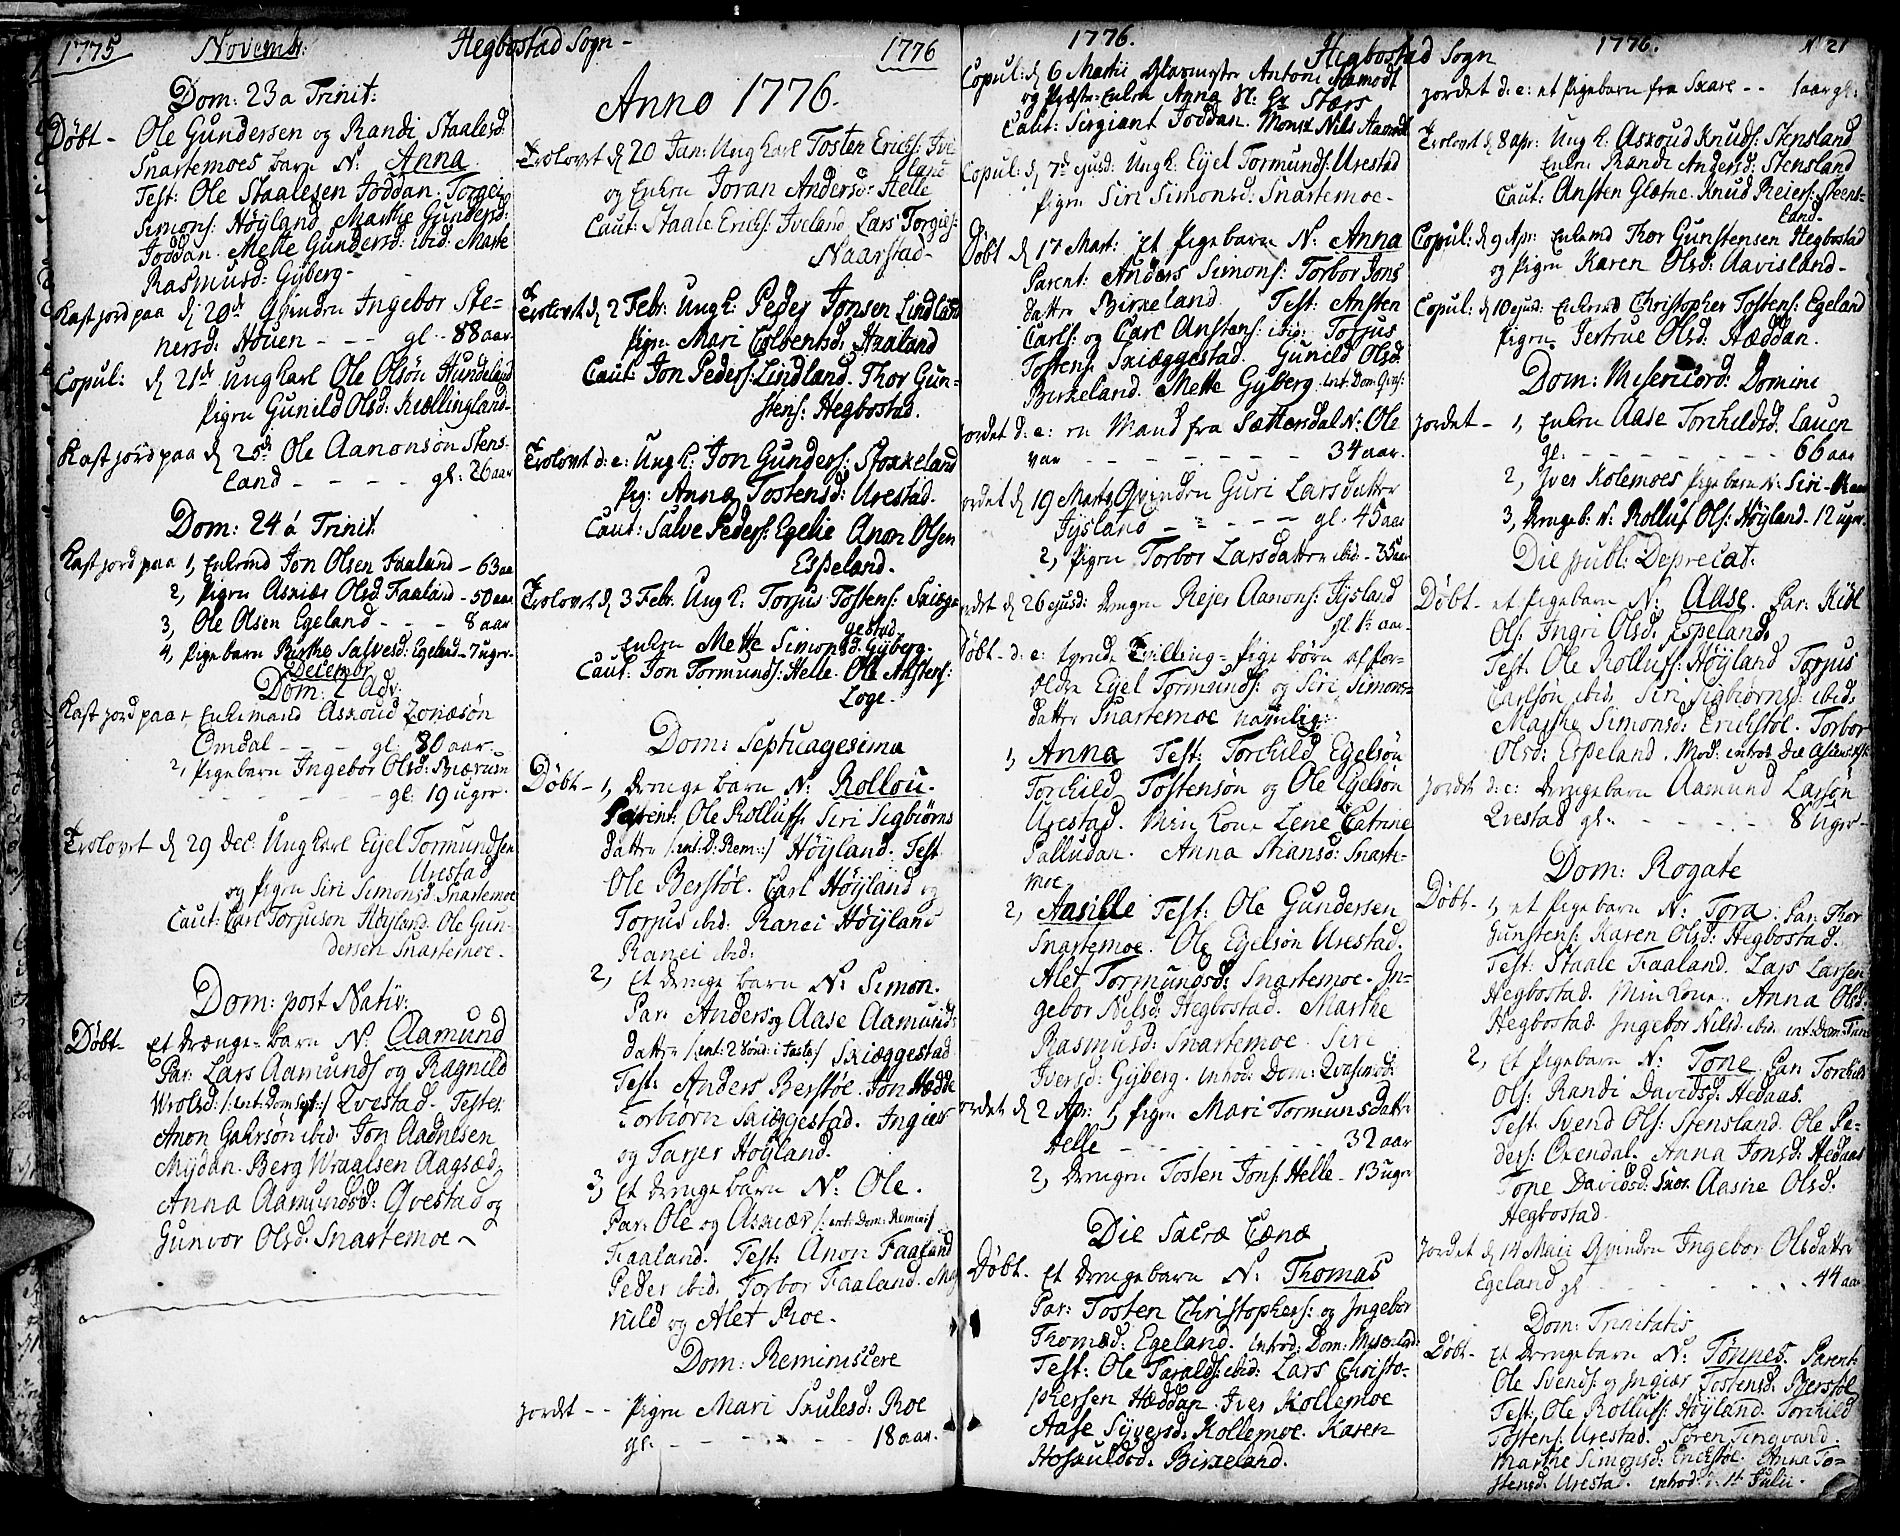 1775 Novembr: Hegbostad Sogn - 1776
Dom: 23 a Trinit:
Døbt - Ole Gundersen og Randi Staalesd:
Snartemoes barn N: Anna
Test: Ole Staalesen Joddan. Torgei
Simons: Høyland Marthe Gundersd:
Joddan. Mette Gundersd: ibid: Marte
Rasmusd: Gyberg -
Kast jord paa d 20de Qvinden Ingebor Ste-
nersd: Houen - - - gl - 88 aar
Copul: d 21de Ungkarl Ole Olsøn Hundeland
Pigen Gunild Olsd: Kiællingland -
Kast jord paa d 25de Ole Aanonsøn Stens-
land - - - - gl: 26 aar
Dom: 24 a Trinit
Kast jord paa 1, Enkemd Jon Olsen Faaland - 63 aa
2, Pigen Asxiær Olsd: Faaland - 50 aar
3, Ole Olsen Egeland - - - 8 aar
4, Pigebarn Birthe Salvesd: Egeland - 7 uger -
Decembr
Dom: 1 Adv:
Kast jord paa 1, Enkemand Asxoud Zonæsøn
Omdal - - - gl: 80 aar -
2, Pigebarn Ingebor Olsd: Biærum
- - - - - - gl: 19 uger -
Trolovet d 29 Dec: Ungkarl Eyel Tormundsen
Urestad
og Pigen Siri Simonsd: Snartemoe
Caut: Carl Torjuson Høyland. Ole Gun-
dersen Snartemoe -
Dom: post Nativ:
Døbt - Et drænge-barn N: Aamund
Par: Lars Aamunds og Ragnild
Wrolsd: /: int: Dom Sept: :/ Qvestad - Testes
Anon Gahrsøn ibid. Jon Aadnesen
Mydan. Berg Wraalsen Aagsæd
Anna Aamundsd: Qvestad og
Gunvor Olsd: Snartemoe ~
Anno 1776.
Trolovet d 20 Jan: Ungkarl Tosten Erichs: Ive-
land
og Enken Joran Andersd: Helle
Caut: Staale Erichs: Iveland Lars Torgies:
Naarstad -
Trolovet d 2 Febr: Ungk: Peder Jonsen Lindland
Pigen Mari Colbentsd: Haaland
Caut: Jon Peders: Lindland. Thor Gun-
stens: Hegbostad.
Trolovet d: e: Ungk: Jon Gunders: Stoxkeland
Pig: Anna Tostensd: Urestad.
Caut: Salve Peders: Egelie Anon Olsen
Espeland.
Trolovet d 3 Febr: Ungk: Torjus Tostens: Skiæg-
gestad
Enken Mette Simonsd: Gyberg.
Caut: Jon Tormunds: Helle. Ole Anstens:
Loge.
Dom: Septuagesima
Døbt - 1, Drenge barn N: Rollou.
Parent: Ole Rolluffs. Siri Sigbiørns
datter /: int: D: Rem: :/ Høyland. Test
Ole Berstøl. Carl Høyland og
Torjus ibid: Ranei Høyland
Ranei ibid:
2, Et drenge barn N: Simon.
Par: Anders og Aase Aamunds
datter /: int: 2 Sønd: i Faste :/ Sxiæggestad
Test: Anders Berstøl. Jon Hødde
Torbiørn Skiæggestad. Ingiær
og Tarjer Høyland.
3, Et drenge barn N: Ole.
Par: Ole og Asxiær /: int: Dom: Remins:/
Faaland. Test: Anon Faaland
Peder ibid. Torbor Faaland. Mag
nild og Alet Roe.
Dom: Reminiscere
Jordet - - Pigen Mari Skulesd: Roe
gl: - - - - - - 18 aar.
1776. Hegbostad Sogn 1776. N 21
Copul: d 6 Martii Glarmester Antoni Aamodt
og Præste-Enken Anna Sl: Hr Stærs
Caut: Sergiant Joddan. Monsr Nils Aamodt
Copul: d 7de ejusd: Ungk: Eyel Tormunds: Urestad
Pigen Siri Simonsd: Snartemoe -
Døbt d 17 Mart: Et Pigebarn N: Anna
Parent: Anders Simons: Torbor Jons
datter Birkeland. Test: Ansten
Carls: og Carl Anstens: ibid: Torjus
Tostens: Skiæggestad. Gunild Olsd:
Birkeland. Mette Gyberg
Jordet d: e: en Mand fra Sættersdal N: Ole
var - - - - - - - 34 aar.
Jordet d 19 Marts Qvinden Guri Larsdatter
Fysland - - - - - gl. 45 aar
2, Pigen Torbor Larsdatter ibid - 35 aar
Jordet d 26 ejusd: Drengen Rejer Aanons: Fysland
gl 1½ aar -
Døbt - d: e: tvende Tvilling-Pige børn af For-
ældre Eyel Tormunds: og Siri Simons-
datter Snartemoe navnlig:
1, Anna Test: Torchild Egelsøn
Torchild Tostensøn og Ole Egelsøn
Urestad. Min Kone Lene Catrine
Palludan. Anna Stiansd: Snarte-
moe.
2, Ansille Test: Ole Gundersen
Snartemoe. Ole Egelsøn Urestad.
Alet Tormundsd: Snartemoe. In-
gebor Nilsd: Hegbostad. Marthe
Rasmusd: Snartemoe. Siri
Iversd: Gyberg. Introd: Dom: Qvasimod:
Jordet d 2 Apr: 1, Pigen Mari Tormunsdatter
Helle - - - - - - - 32 aar
2, Drengen Tosten Jons: Helle - 13 uger
Die Sacræ Cænæ
Døbt - Et drengebarn N: Thomas
Par: Tosten Christophers: og Ingebor
Thomæd: Egeland. introd: Dom:
Test: Ole Taralds: ibid: Lars Christo-
phersen Hæddan. Iver Kollemoe
Aase Syversd: Kollemoe. Karen
Hoskuldsd: Birkeland.
Jordet d: e: et Pigebarn fra Skare - - 1 aar gl:
Trolovet d 8 Apr: Ungk: Asxoud Knuds: Stensland
Enken Randi Andersd: Stensland
Caut: Ansten Glætne. Knud Reiers: Steens-
land.
Copul: d 9 Apr: Enkemd Thor Gunstensen Hegbostad
og Pigen Karen Olsd: Aavisland -
Copul: d 10 ejusd: Enkemd Christopher Tostens: Egeland
Pigen Jertrue Olsd: Hæddan.
Dom: Misericord: Domini
Jordet - 1, Enken Aase Torchildsd: Lauen
gl: - - - - - - - 66 aar
2, Iver Kolemoes Pigebarn N: Siri
3, Drengeb: N: Rolluf Ols: Høyland - 12 uger
Die publ: Deprecat:
Døbt - et Pigebarn N: Aase. Par: Kiøl
Ols: Ingri Olsd: Espeland.
Test: Ole Rollufs: Høyland Torjus
Carlsøn ibid. Siri Sigbiørnsd: ibid:
Marthe Simonsd: Erichstøl. Torbor
Olsd: Espeland. Mod: introd: Die
Jordet d: e: Drengebarn Aamund Larsøn
Qvestad gl: - - - - - 8 uger -
Dom: Rogate
Døbt - 1, et Pigebarn N: Tora. Par: Thor
Gunstens: Karen Olsd: Hegbostad.
Test: Staale Faaland. Lars Larsen
Hegbostad. Min Kone. Anna Olsd:
Hegbostad. Ingebor Nilsd: ibid: int: Dom: Trin
2, Et Pigebarn N: Tone Par: Torchild
Ols: Randi Davidsd: Hedaas.
Test: Svend Ols: Stensland. Ole Pe-
ders: Oxendal. Anna Jonsd: Hedaas
Tone Davidsd: Aasne Olsd:
Hegbostad.
Jordet d 14 Maii Qvinden Ingebor Olsdatter
Egeland gl - - - - - 44 aar
Dom: Trinitatis
Døbt - Et Drengebarn N: Tønnes. Parent:
Ole Svends: og Ingiær Tostensd: Berstøl
Test: Ole Rollufs: Høyland. Torchild
Tostens: Urestad. Søren Tingvand.
Marthe Simonsd: Erichstøl. Anna To-
stensd: Urestad. introd: d: 14 Julii.